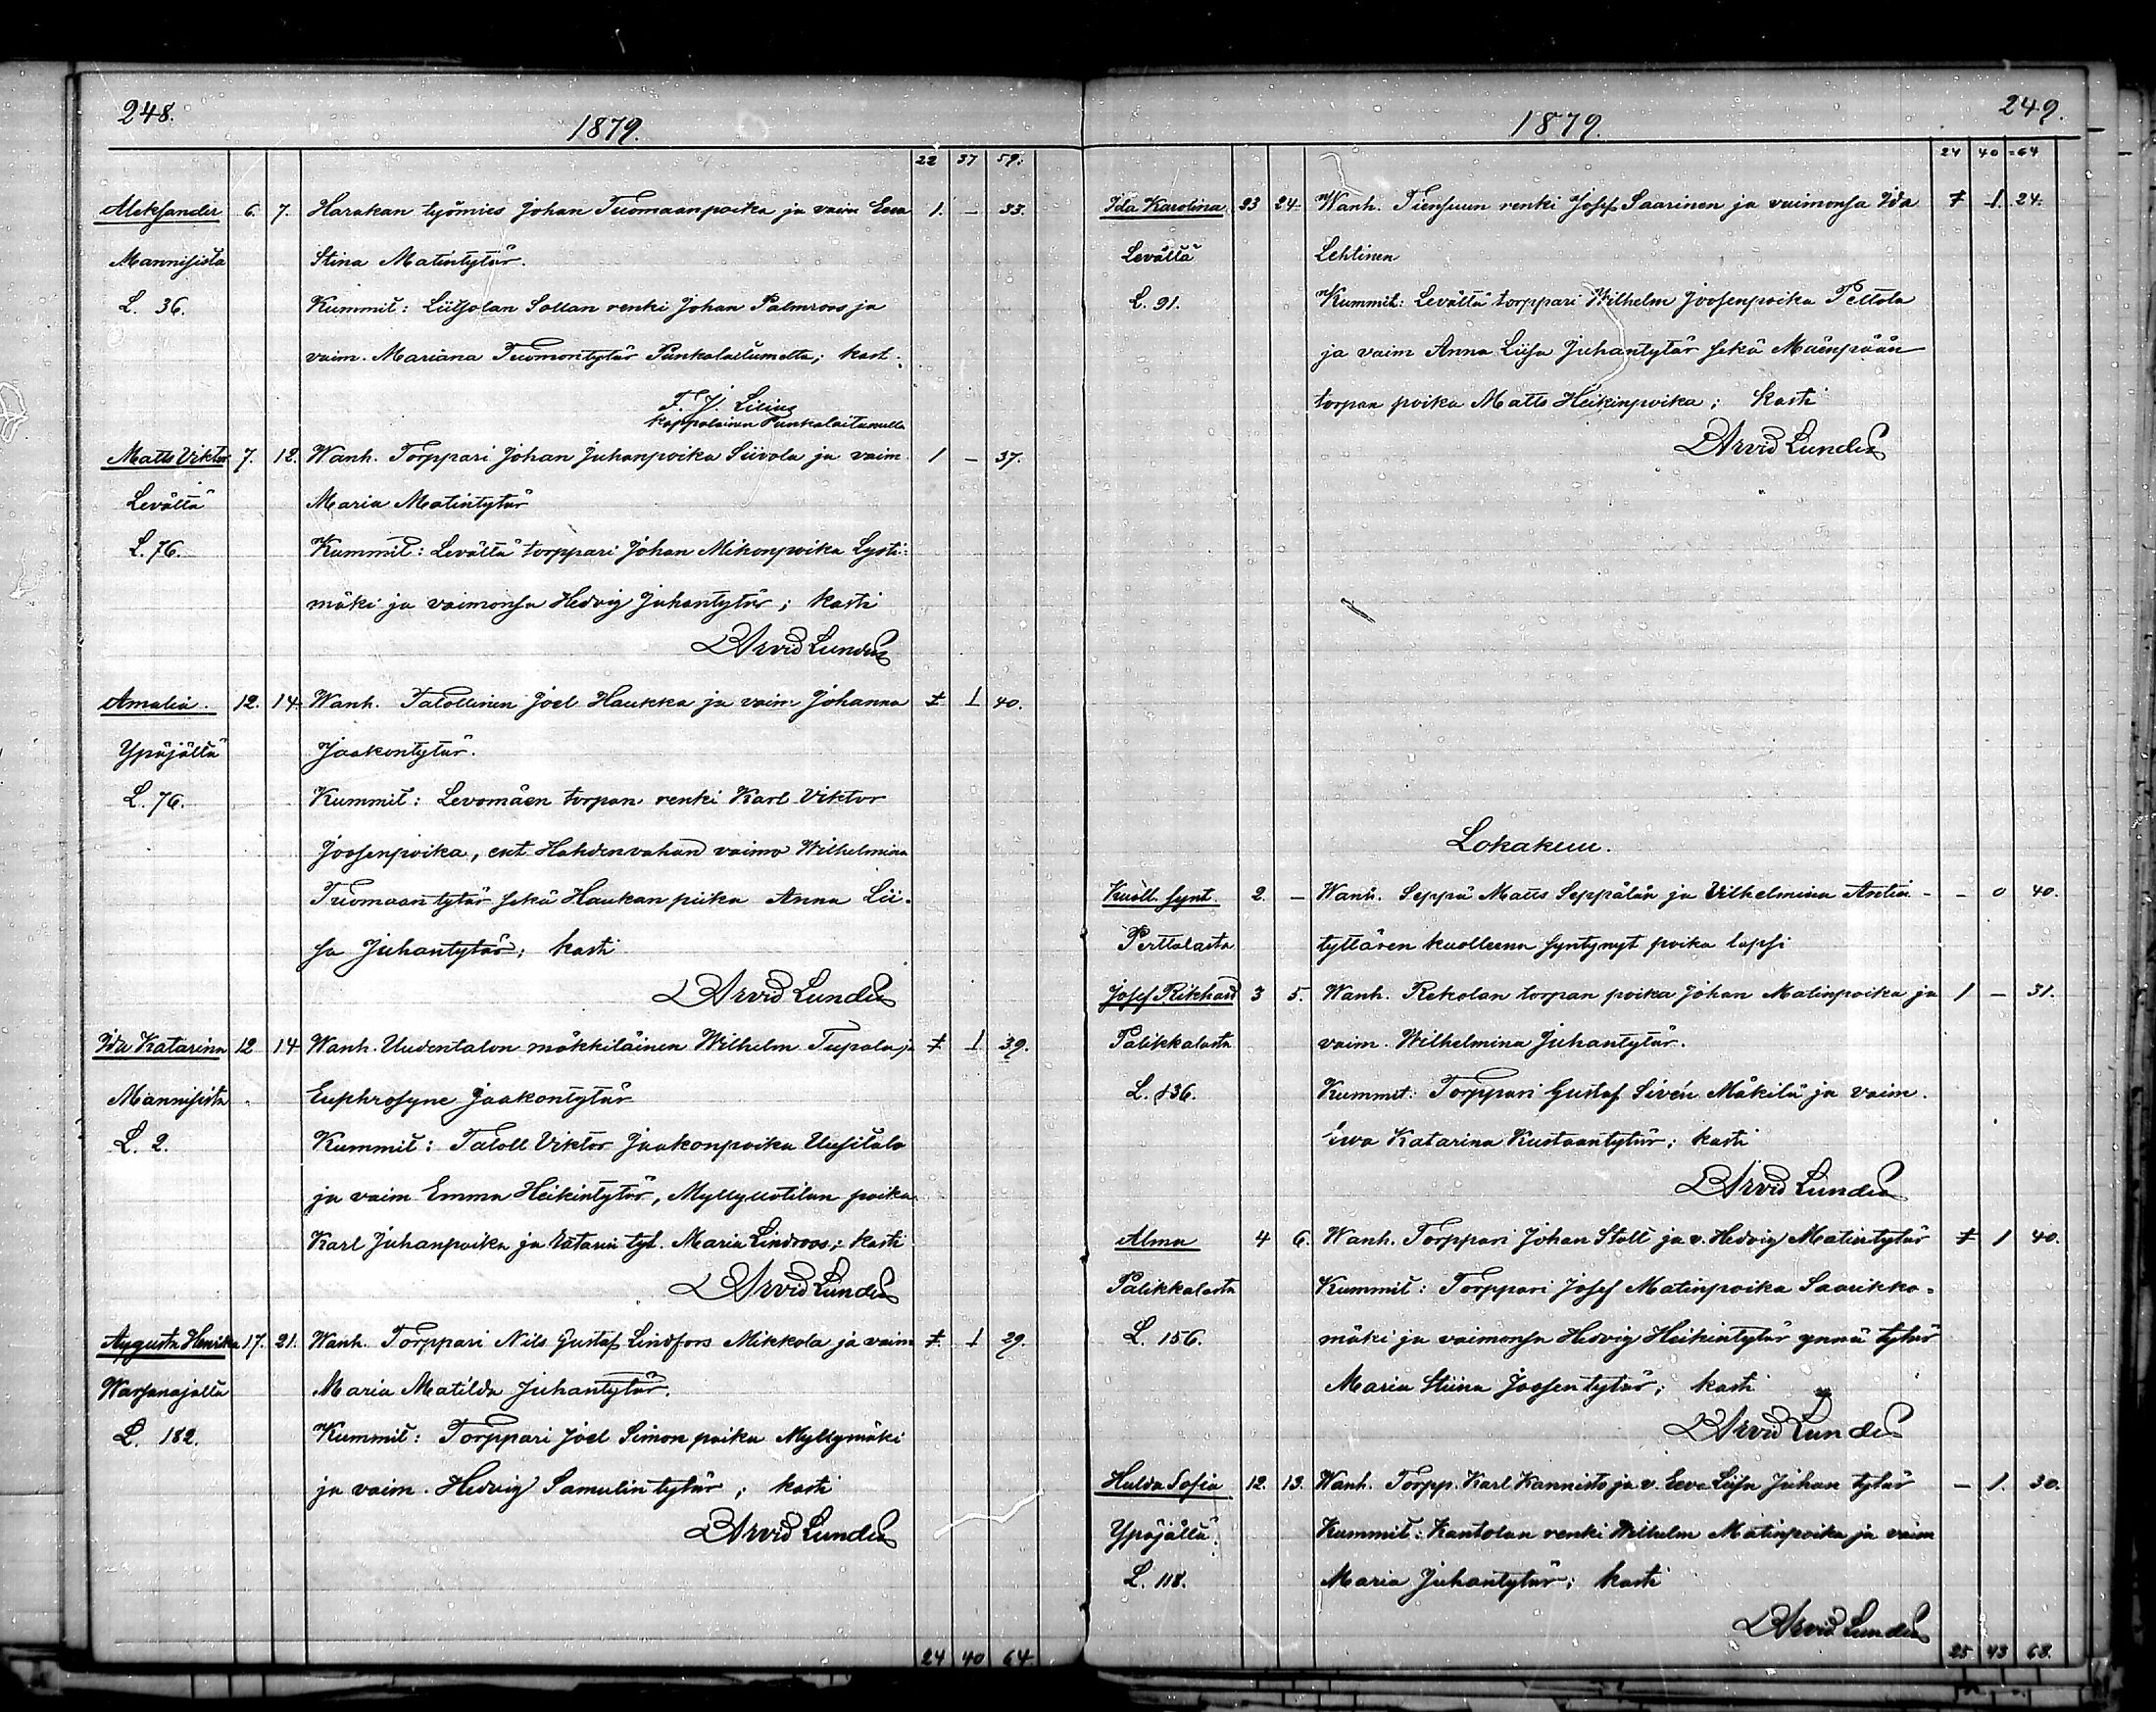 248.
1879.
22 37 59.
Aleksander 6. 7. Harakan työmies Johan Tuomaanpoika ja vaim Eeva 1. — 33.
Mannisista Stina Matintytär.
L. 36. Kummit: Liitsolan Sallan renki Johan Palmroos ja
vaim. Mariana Tuomontytär Punkalaitumelta; kast.
F. J. Lilius
kappalainen Punkalaitumella
Matts Viktor 7. 12. Wanh. Torppari Johan Juhanpoika Siivola ja vaim 1 — 37.
Levältä Maria Matintytär
L. 76. Kummit: Levältä torppari Johan Mikonpoika Lysti-
mäki ja vaimonsa Hedvig Juhantytär; kasti
Arvid Lundén
Amalia. 12. 14. Wanh. Talollinen Joel Haukka ja vaim Johanna ‡ 1 40.
Ypäjältä Jaakontytär.
L. 76. Kummit: Levomäen torpan renki Karl Viktor
Joosenpoika, ent. Hahdenvahan vaimo Wilhelmina
Tuomaantytär sekä Haukan piika Anna Lii-
sa Juhantytär; kasti
Arvid Lundén
Ida Katarina 12 14 Wanh. Uudentalon mäkkiläinen Wilhelm Tupala ja ‡ 1 39.
Mannisista Euphrosyne Jaakontytär
L. 2. Kummit: Taloll Viktor Jaakonpoika Uusitalo
ja vaim Emma Heikintytär, Myllynotilan poika
Karl Juhanpoika ja tyt. Maria Lindroos; kasti
Arvid Lundén
Augusta Henrika 17. 21. Wanh. Torppari Nils Gustaf Lindfors Mikkola ja vaim ‡ 1 29.
Warsanojalta Maria Matilda Juhantytär.
L. 182. Kummit: Torppari Joel Simonpoika Myllymäki
ja vaim. Hedvig Samulintytär; kasti
Arvid Lundén
24 40 64.
249.
1879.
24 40 =64
Ida Karolina 23 24. Wanh. Tiensuun renki Josef Saarinen ja vaimonsa Ida ‡ 1. 24.
Levältä Lehtinen
L. 91. Kummit: Levältä torppari Wilhelm Joosenpoika Peltola
ja vaim Anna Liisa Juhantytär sekä Mäenpään
torpan poika Matts Heikinpoika; kasti
Arvid Lundén
Lokakuu.
Kuoll. synt. 2. — Wanh. Seppä Matts Seppälän ja Vilhelmina Antin- — 0 40.
Perttulasta tyttären kuolleena syntynyt poika lapsi
Josef Rikhard 3 5. Wanh. Rekolan torpan poika Johan Matinpoika ja 1 — 31.
Palikkalasta vaim. Wilhelmina Juhantytär.
L. 136. Kummit: Torppari Gustaf Sivén Mäkilä ja vaim.
Ewa Katarina Kustaantytär; kasti
Arvid Lundén
Alma 4 6. Wanh. Torppari Johan Stall ja v. Hedvig Matintytär ‡ 1 40.
Palikkalasta Kummit: Torppari Josef Matinpoika Saarikko-
L. 156. mäki ja vaimonsa Hedvig Heikintytär ynnä tytär
Maria Stiina Joosentytär; kasti
Arvid Lundén
Hulda Sofia 12. 13. Wanh. Torpp. Karl Kannisto ja v. Eeva Liisa Juhantytär — 1. 30.
Ypäjältä. Kummit: Kantolan renki Wilhelm Matinpoika ja vaim
L. 118. Maria Juhantytär; kasti
Arvid Lundén
25 43 68.